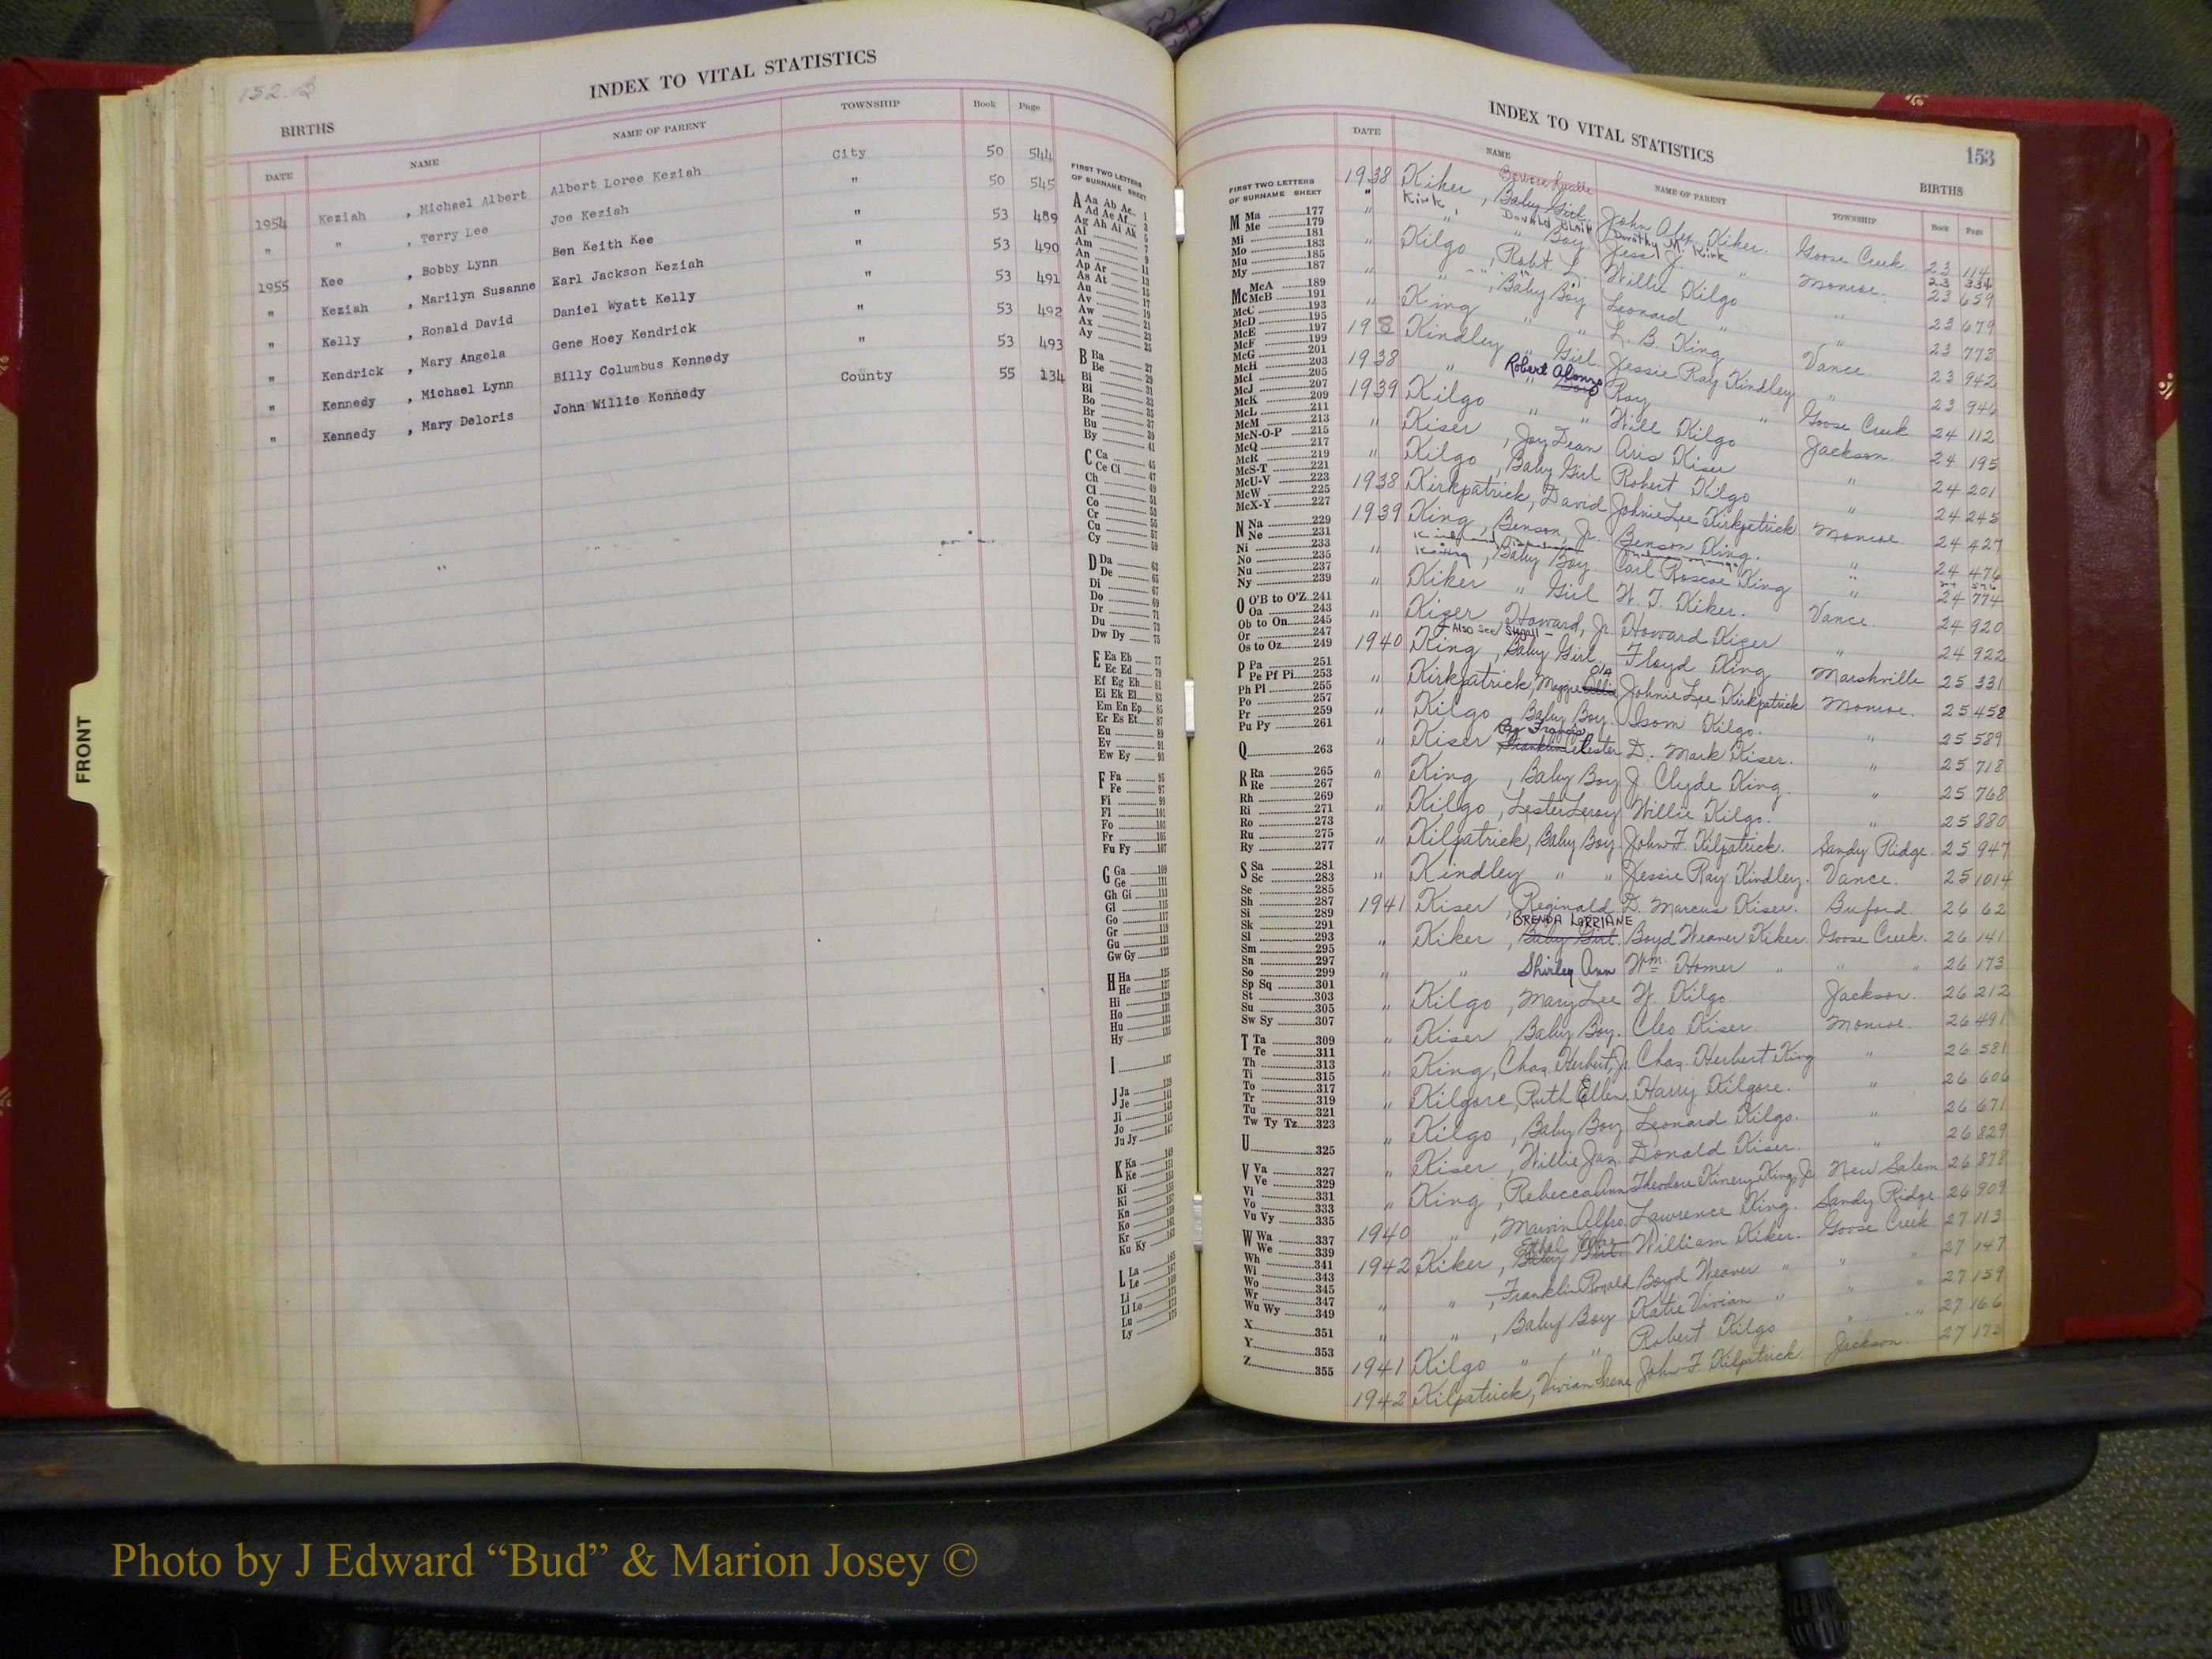 152. B
INDEX TO VITAL STATISTICS
BIRTHS
DATE NAME NAME OF PARENT TOWNSHIP Book Page
1954 Keziah , Michael Albert Albert Loree Keziah City 50 544
" " , Terry Lee Joe Keziah " 50 545
1955 Kee , Bobby Lynn Ben Keith Kee " 53 489
" Keziah , Marilyn Susanne Earl Jackson Keziah " 53 490
" Kelly , Ronald David Daniel Wyatt Kelly " 53 491
" Kendrick , Mary Angela Gene Hoey Kendrick " 53 492
" Kennedy , Michael Lynn Billy Columbus Kennedy " 53 493
" Kennedy , Mary Deloris John Willie Kennedy County 55 134
FRONT
FIRST TWO LETTERS
OF SURNAME SHEET
A Aa Ab Ae 1
Ad Ae Af 3
Ag Ah Ai Ak 5
Al 7
Am 9
An 11
Ap Ar 13
As At 15
Au 17
Av 19
Aw 21
Ax 23
Ay 25
B Ba 27
Be 29
Bi 31
Bl 33
Bo 35
Br 37
Bu 39
By 41
C Ca 45
Ce Ci 47
Ch 49
Cl 51
Co 53
Cr 55
Cu 57
Cy 59
D Da 63
De 65
Di 67
Do 69
Dr 71
Du 73
Dw Dy 75
E Ea Eb 77
Ec Ed 79
Ef Eg Eh 81
Ei Ek El 83
Em En Ep 85
Er Es Et 87
Eu 89
Ev 91
Ew Ey 93
F Fa 95
Fe 97
Fi 99
Fl 101
Fo 103
Fr 105
Fu Fy 107
G Ga 109
Ge 111
Gh Gi 113
Gl 115
Go 117
Gr 119
Gu 121
Gw Gy 123
H Ha 125
He 127
Hi 129
Ho 131
Hu 133
Hy 135
I 137
J Ja 139
Je 141
Ji 143
Jo 145
Ju Jy 147
K Ka 149
Ke 151
Ki 153
Ki 155
Kn 157
Ko 159
Kr 161
Ku Ky 163
L La 165
Le 167
Li 169
Ll Lo 171
Lu 173
Ly 175
INDEX TO VITAL STATISTICS
153
BIRTHS
FIRST TWO LETTERS
OF SURNAME SHEET
M Ma 177
Me 179
Mi 181
Mo 183
Mu 185
My 187
Mc McA 189
McB 191
McC 193
McD 195
McE 197
McF 199
McG 201
McH 203
McI 205
McJ 207
McK 209
McL 211
McM 213
McN-O-P 215
McQ 217
McR 219
McS-T 221
McU-V 223
McW 225
McX-Y 227
N Na 229
Ne 231
Ni 233
No 235
Nu 237
Ny 239
O O'B to O'Z 241
Oa 243
Ob to On 245
Or 247
Os to Oz 249
P Pa 251
Pe Pf Pi 253
Ph Pl 255
Po 257
Pr 259
Pu Py 261
Q 263
R Ra 265
Re 267
Rh 269
Ri 271
Ro 273
Ru 275
Ry 277
S Sa 281
Sc 283
Se 285
Sh 287
Si 289
Sk 291
Sl 293
Sm 295
Sn 297
So 299
Sp Sq 301
St 303
Su 305
Sw Sy 307
T Ta 309
Te 311
Th 313
Ti 315
To 317
Tr 319
Tu 321
Tw Ty Tz 323
U 325
V Va 327
Ve 329
Vi 331
Vo 333
Vu Vy 335
W Wa 337
We 339
Wh 341
Wi 343
Wo 345
Wr 347
Wu Wy 349
X 351
Y 353
Z 355
DATE NAME NAME OF PARENT TOWNSHIP Book Page
1938 Kiker , Baby Girl John Alex Kiker. Goose Creek 23 114
" Kirk, Donald Blair Boy. Jess J. Dorothy M. Kirk 23 334
" Kilgo , Robt. L. Willie Kilgo Monroe. 23 659
" " , Baby Boy Leonard " " 23 679
" King " " L. B. King " 23 773
1938 Kindley " Girl Jessie Ray Kindley Vance 23 942
1938 " Robert Alonzo Ray " " 23 946
1939 Kilgo " " Will Kilgo Goose Creek 24 112
" Kiser , Joy Dean Aris Kiser Jackson 24 195
" Kilgo , Baby Girl Robert Kilgo " 24 201
1938 Kirkpatrick, David Johnie Lee Kirkpatrick " 24 245
1939 King , Benson, Jr. Benson King. Monroe 24 427
" King , Baby Boy. Carl Roscoe King " 24 476
" Kiker " Girl W. T. Kiker. " 24 774
" Kizer , Howard, Jr. Howard Kizer Vance. 24 920
- Also See Small -
1940 King , Baby Girl Floyd King " 24 922
" Kirkpatrick, Maggie Ola Johnie Lee Kirkpatrick Marshville 25 331
" Kilgo Baby Boy. Isom Kilgo. Monroe. 25 458
Ray Francis
" Kiser Franklin Lester D. Mark Kiser. " 25 589
" King , Baby Boy J. Clyde King. " 25 718
" Kilgo , Lester Leroy Willie Kilgo. " 25 768
" Kilpatrick, Baby Boy. John F. Kilpatrick. " 25 880
" Kindley " " Jessie Ray Kindley. Sandy Ridge. 25 947
Vance. 25 1014
1941 Kiser Reginald D. Marcus Kiser. Buford. 26 62
BRENDA LORRIANE
" Kiker , Baby Girl. Boyd Weaver Kiker. Goose Creek. 26 141
" " Shirley Ann Wm. Homer " " " 26 173
" Kilgo , Mary Lee W. Kilgo. Jackson. 26 212
" Kiser , Baby Boy. Cleo Kiser. Monroe. 26 491
" King, Chas. Herbert, Jr. Chas. Herbert King " 26 581
" Kilgore, Ruth Ellen. Harry Kilgore. " 26 606
" Kilgo , Baby Boy Leonard Kilgo. " 26 671
" Kiser , Willie Jas. Donald Kiser. " 26 829
" King , Rebecca Ann Theodore Kinery King, Jr. New Salem 26 878
1940 " , Marvin Alfro Lawrence King. Sandy Ridge. 26 909
1942 Kiker , Baby Girl. William Kiker. Goose Creek 27 113
" " , Franklin Ronald Boyd Weaver " " " 27 147
" " , Baby Boy Katie Vivian " " " 27 159
1941 Kilgo " " Robert Kilgo " " 27 166
1942 Kilpatrick, Vivian Irene John F. Kilpatrick Jackson. 27
Photo by J Edward “Bud” & Marion Josey ©